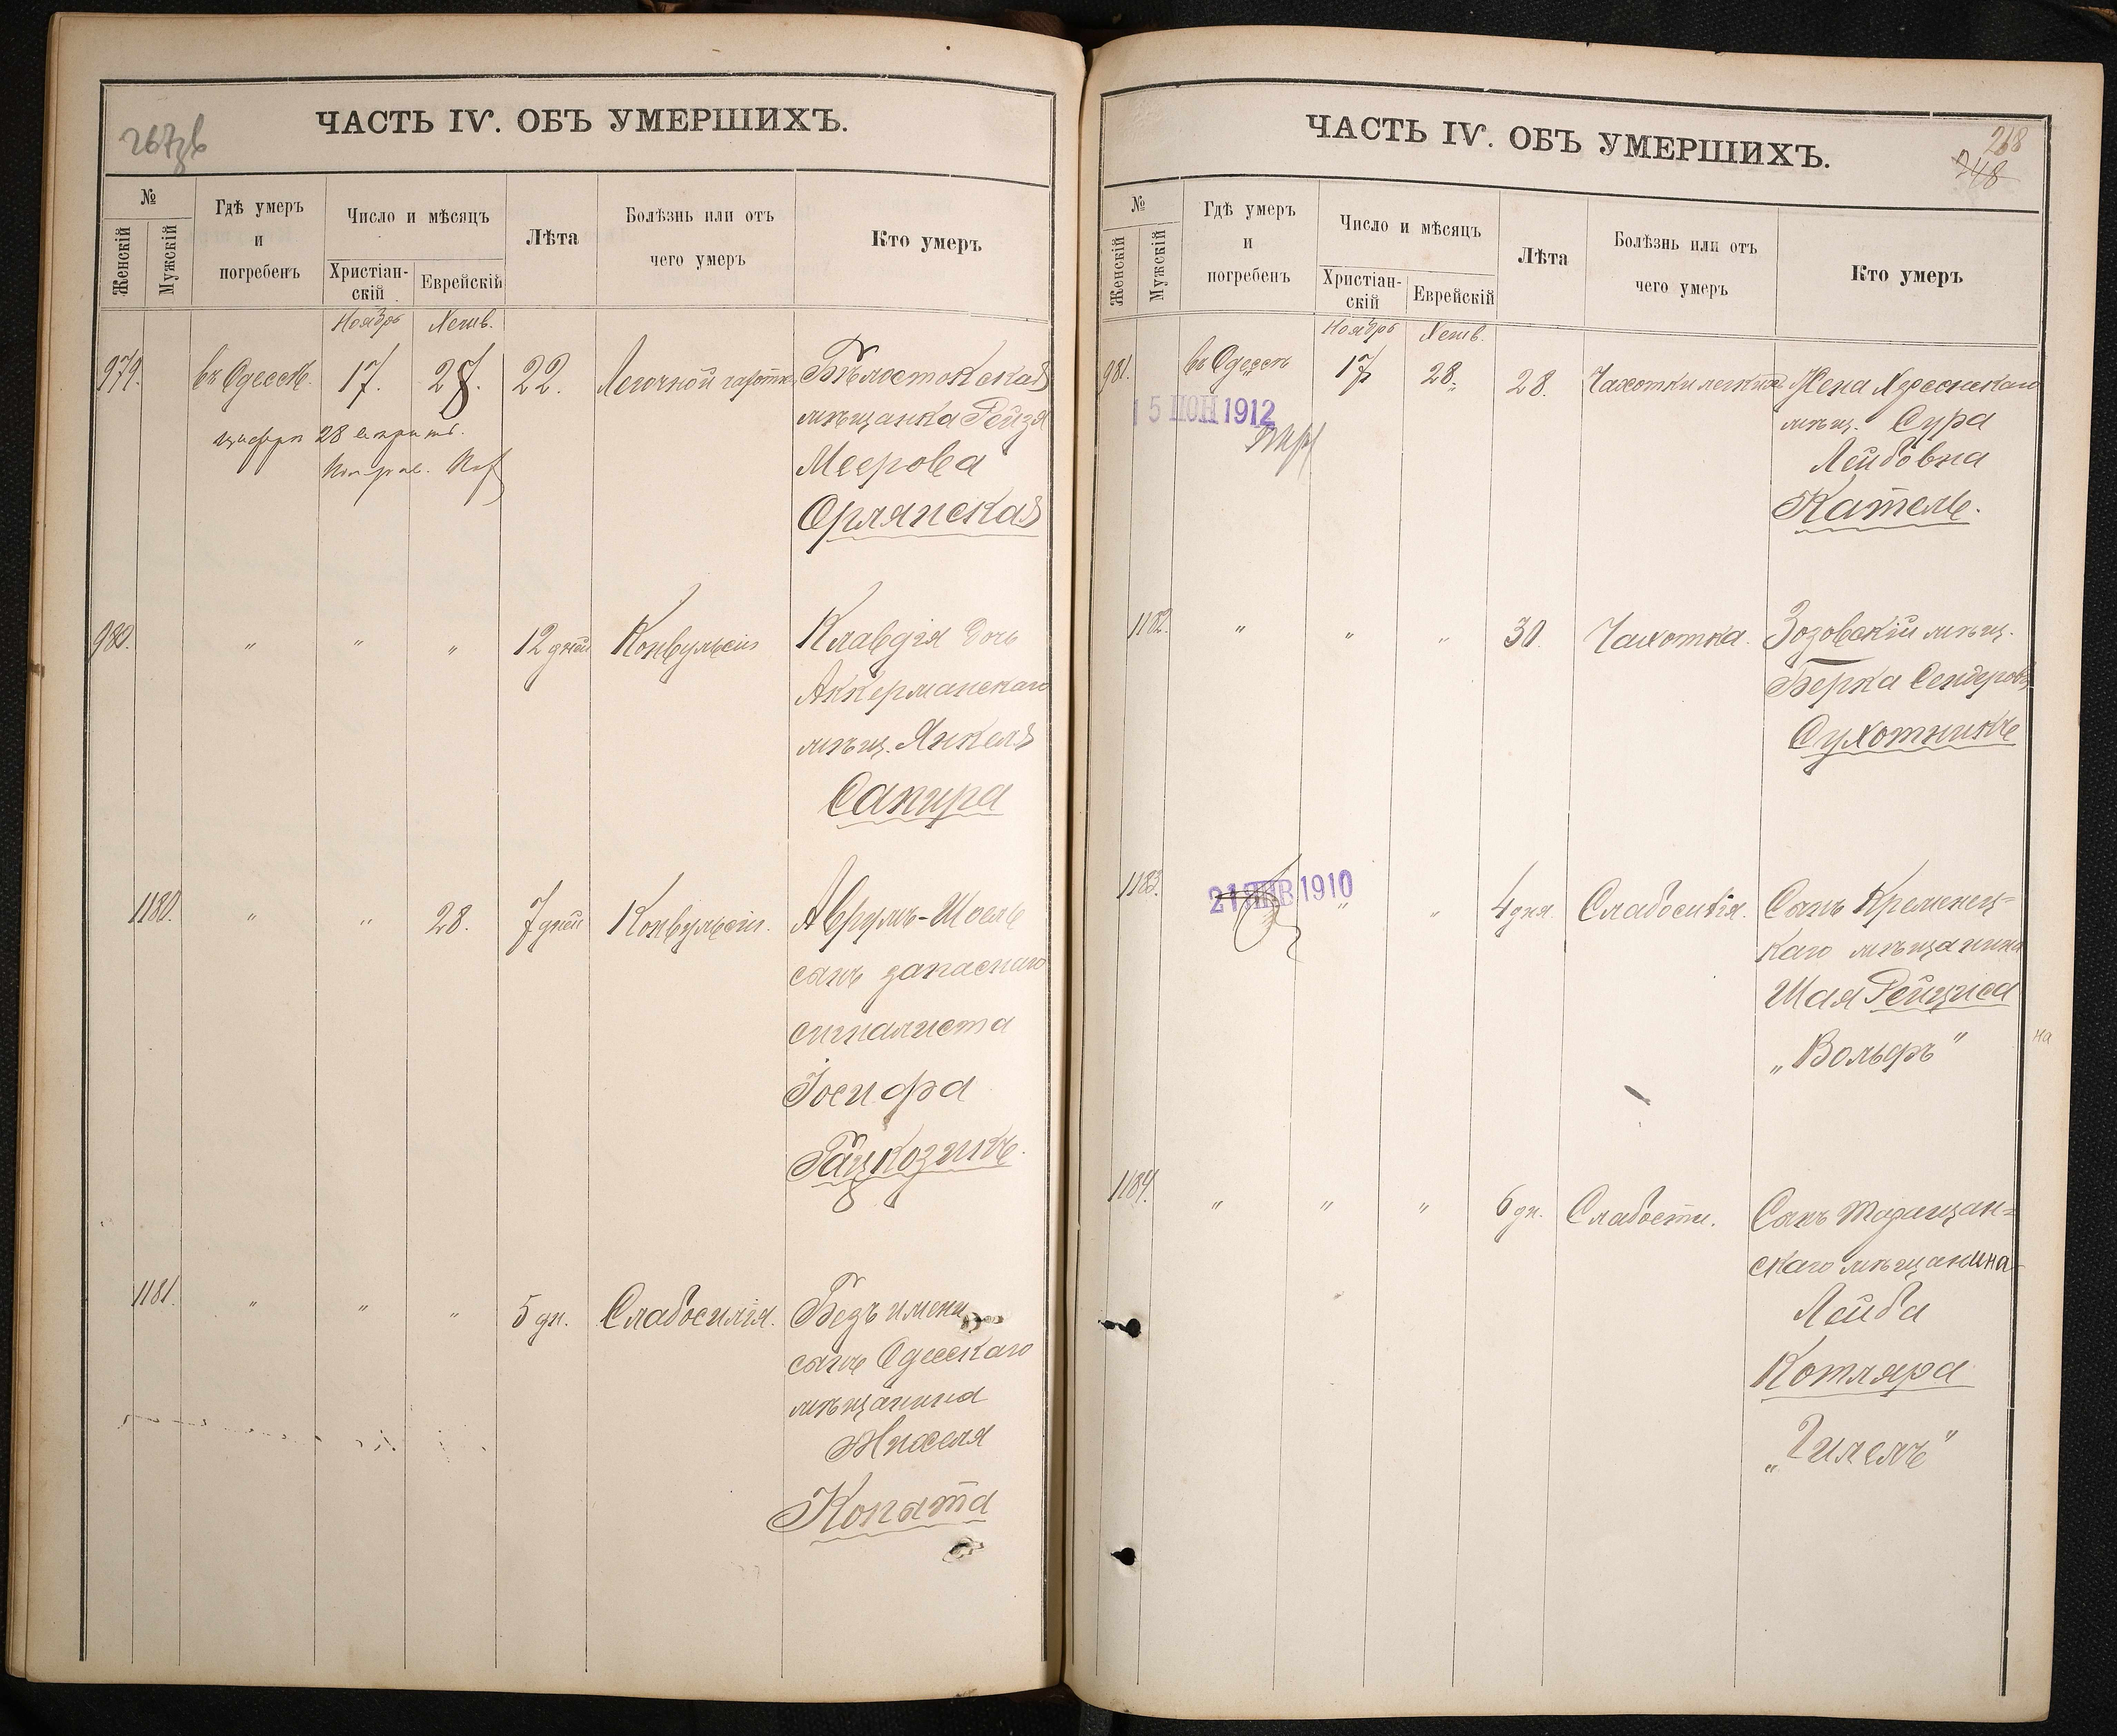 267зв
ЧАСТЬ IV. ОБЪ УМЕРШИХЪ.
№
Женскій
Мужскій
Гдѣ умеръ
и
погребенъ
Число и мѣсяцъ
Христіан-
скій
Еврейскій
Лѣта
Болѣзнь или отъ
чего умеръ
Кто умеръ
Ноябрь Хешв.
979. въ Одессѣ. 17. 28. 22. Легочной чахотки Бѣлостокская
мѣщанка Рейзя
Меерова
Орлянская
цифра 28 исправ.
980. " " " 12 дней Конвульсіи Клавдія дочь
Аккерманскаго
мѣщ. Янкеля
Сапира
1180. " " 28. 7 дней Конвульсіи. Аврумъ-Шоель
сынъ запаснаго
сигналиста
Іосифа
Гацкозикъ.
1181. " " " 5 дн. Слабосилія. Безъ имени
сынъ Одесскаго
мѣщанина
Хискеля
Копыта
ЧАСТЬ IV. ОБЪ УМЕРШИХЪ.
268
248
№
Женскій
Мужскій
Гдѣ умеръ
и
погребенъ
Число и мѣсяцъ
Христіан-
скій
Еврейскій
Лѣта
Болѣзнь или отъ
чего умеръ
Кто умеръ
Ноябрь Хешв.
981. въ Одессѣ 17 28. 28. Чахотки легкихъ Жена Херсонскаго
мѣщ. Сура
Лейбовна
Кательъ.
15 ІЮН 1912
1182. " " " 30. Чахотка. Зозовскій мѣщ.
Берка Сендеровъ
Сухотникъ
1183. 21 ЯНВ 1910 " " 4 дня. Слабосилія. Сынъ Кременец=
каго мѣщанина
Шая Рейциса
"Вольфъ"
на
1184. " " " 6 дн. Слабости. Сынъ Таращан=
скаго мѣщанина
Лейба
Котляра
"Гилелъ"